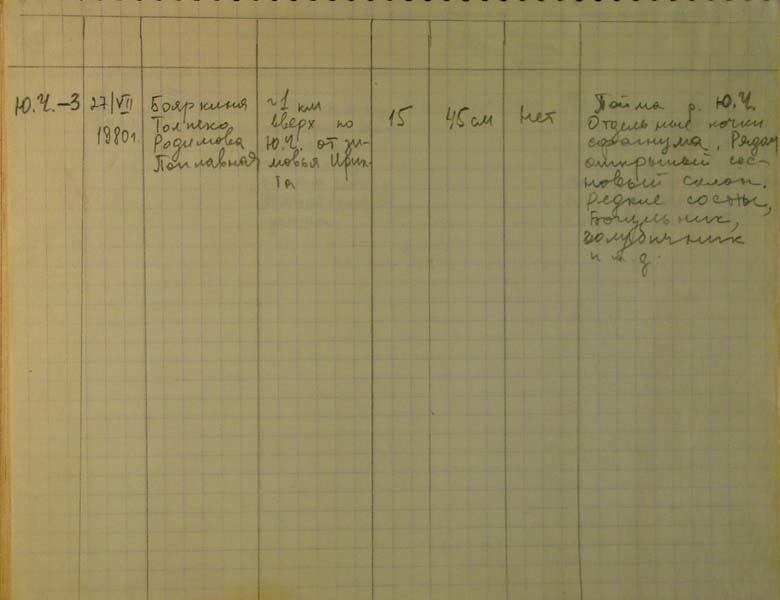 Ю.Ч.-3
27/VII
1980г.
Бояркина
Толпеко
Родимова
Поплавная
~1 км
вверх по
Ю.Ч. от зи-
мовья Ирик-
та
15
45 см
нет
Пойма р. Ю.Ч.
Отдельные кочки
сфагнума. Рядом
открытый сос-
новый склон.
Редкие сосны,
Багульник,
голубичник
и т.д.